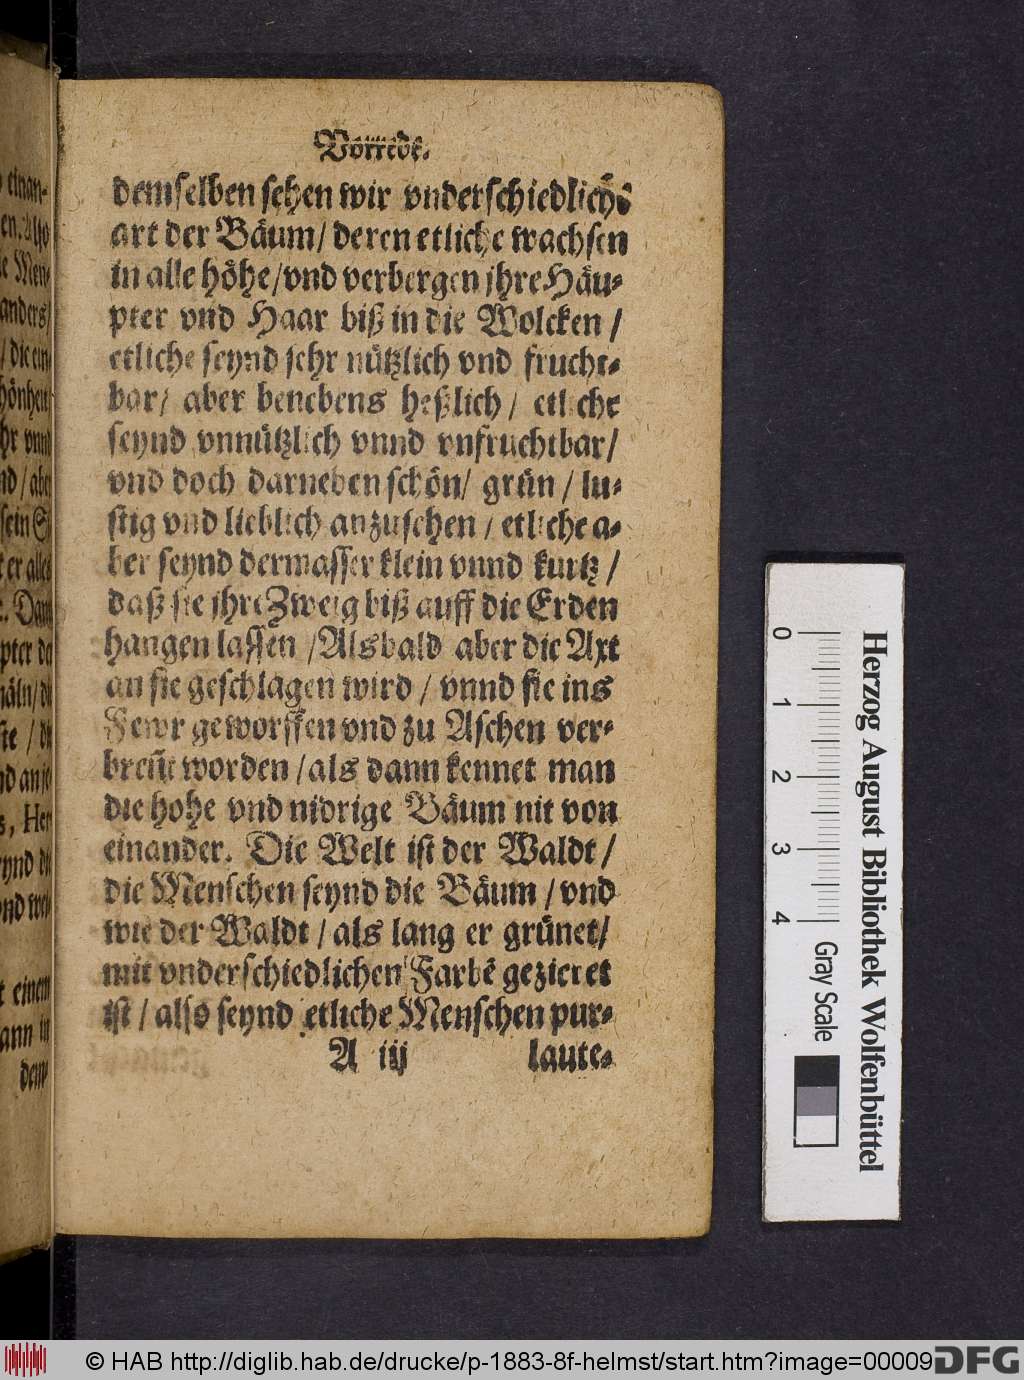 Vorrede.
demselben sehen wir vnderschiedliche
art der Bäum/ deren etliche wachsen
in alle höhe/vnd verbergen jhre Häu-
pter vnd Haar biß in die Wolcken /
etliche seynd sehr nützlich vnd frucht-
bar/ aber benebens heßlich/ etliche
seynd vnnützlich vnnd vnfruchtbar/
vnd doch darneben schön/ grün / lu-
stig vnd lieblich anzusehen / etliche a-
ber seynd dermassen klein vnnd kurtz /
daß sie jhre Zweig biß auff die Erden
hangen lassen /Alsbald aber die Axt
an sie geschlagen wird / vnnd sie ins
Fewr geworffen vnd zu Aschen ver-
breñt worden /als dann kennet man
die hohe vnd nidrige Bäum nit von
einander. Die Welt ist der Waldt /
die Menschen seynd die Bäum /vnd
wie der Waldt / als lang er grünet/
mit vnderschiedlichen Farbē gezieret
ist / also seynd etliche Menschen pur-
A iij laute-
einan-
Also
Men-
anders/
/ die ein
vnnd
/ aber
er alles
Dann
einem
dem-
Herzog August Bibliothek Wolfenbüttel
0 1 2 3 4
Gray Scale
© HAB http://diglib.hab.de/drucke/p-1883-8f-helmst/start.htm?image=00009
DFG